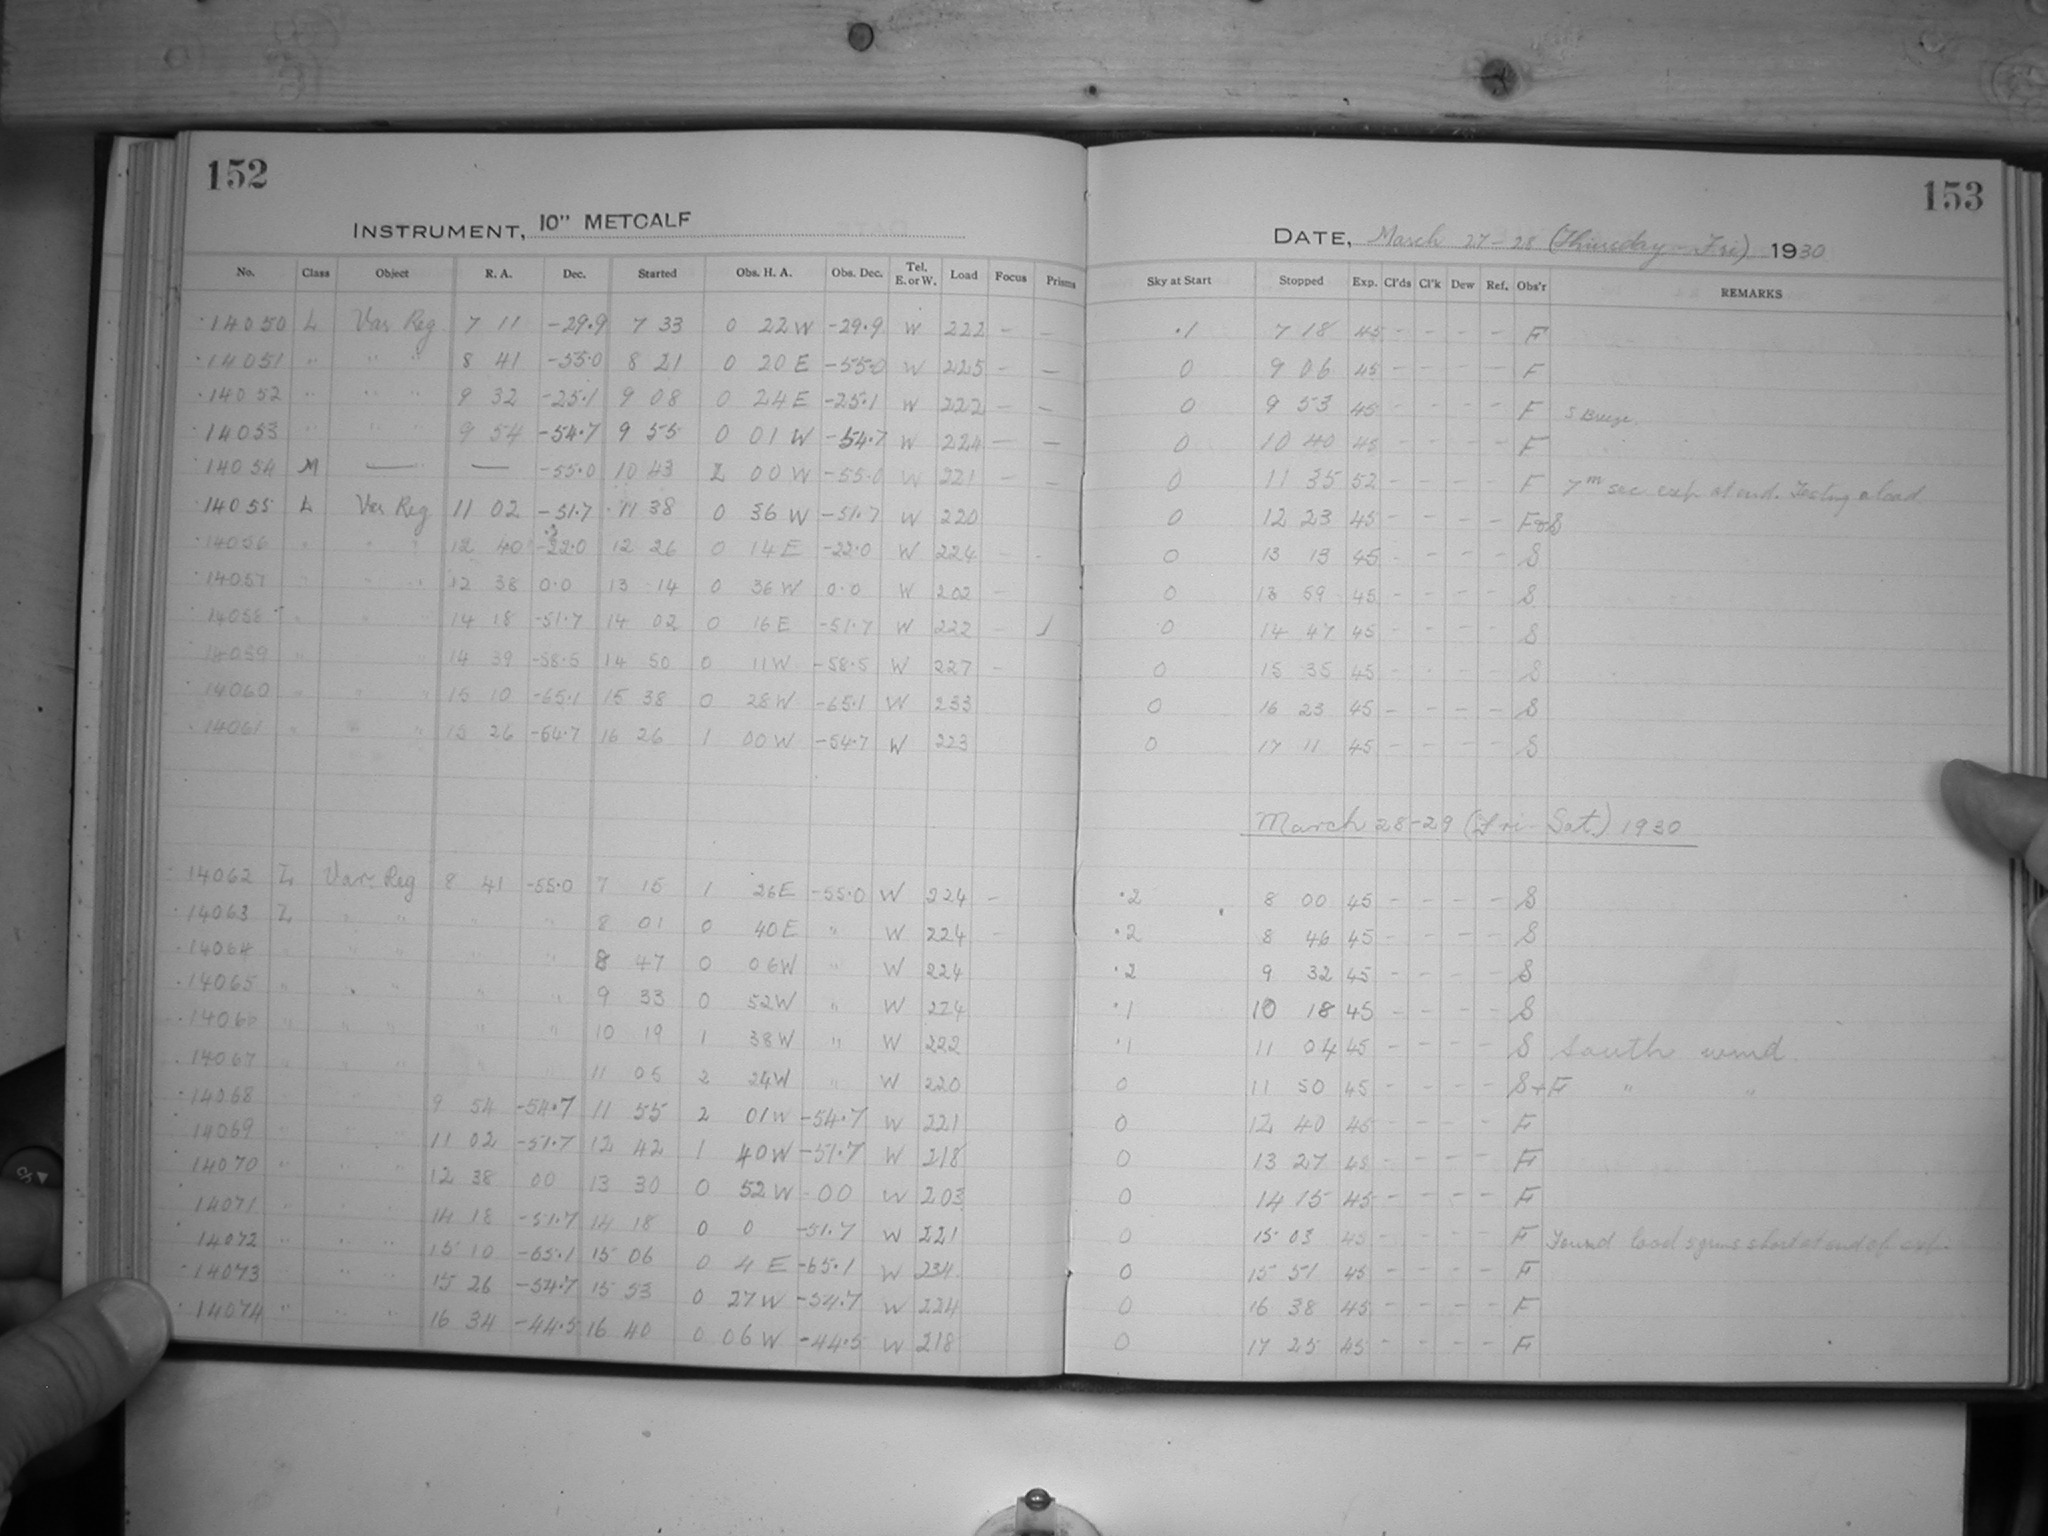 152
INSTRUMENT, 10" METCALF
No. Class Object R. A. Dec. Started Obs. H. A. Obs. Dec. Tel. E. or W. Load Focus Prisms
14050 L Var Reg 7 11 -29.9 7 33 0 22 W -29.9 W 222 - -
14051 " " " 8 41 -55.0 8 21 0 20 E -55.0 W 225 - -
14052 " " " 9 32 -25.1 9 08 0 24 E -25.1 W 222 - -
14053 " " " 9 54 -54.7 9 55 0 01 W -54.7 W 224 - -
14054 M — — -55.0 10 43 2 00 W -55.0 W 221 - -
14055 L Var Reg 11 02 -51.7 11 38 0 36 W -51.7 W 220
14056 " " " 12 40 -22.0 12 26 0 14 E -22.0 W 224 - -
14057 " " " 12 38 0.0 13 14 0 36 W 0.0 W 202 -
14058 " " " 14 18 -51.7 14 02 0 16 E -51.7 W 222 -
14059 " " " 14 39 -58.5 14 50 0 11 W -58.5 W 227 -
14060 " " " 15 10 -65.1 15 38 0 28 W -65.1 W 233
14061 " " " 15 26 -54.7 16 26 1 00 W -54.7 W 223
14062 L Var. Reg 8 41 -55.0 7 15 1 26 E -55.0 W 224 -
14063 L " " " " 8 01 0 40 E " W 224 -
14064 " " " " 8 47 0 06 W " W 224
14065 " " " " " 9 33 0 52 W " W 224
14066 " " " " " 10 19 1 38 W " W 222
14067 " " " " " 11 05 2 24 W " W 220
14068 " " " 9 54 -54.7 11 55 2 01 W -54.7 W 221
14069 " " " 11 02 -51.7 12 42 1 40 W -51.7 W 218
14070 " " " 12 38 00 13 30 0 52 W 00 W 203
14071 " " " 14 18 -51.7 14 18 0 0 -51.7 W 221
14072 " " " 15 10 -65.1 15 06 0 4 E -65.1 W 234
14073 " " " 15 26 -54.7 15 53 0 27 W -54.7 W 224
14074 " " " 16 34 -44.5 16 40 0 06 W -44.5 W 218
153
DATE, March 27-28 (Thursday-Fri) 1930
Sky at Start Stopped Exp. Cl'ds Cl'k Dew Ref. Obs'r REMARKS
.1 7 18 45 - - - - F
0 9 06 45 - - - - F
0 9 53 45 - - - - F S Breeze.
0 10 40 45 - - - - F
0 11 35 52 - - - - F 7m sec exp at end. Testing load
0 12 23 45 - - - - F & S
0 13 13 45 - - - - S
0 13 59 45 - - - - S
0 14 47 45 - - - - S
0 15 35 45 - - - - S
0 16 23 45 - - - - S
0 17 11 45 - - - - S
March 28-29 (Fri-Sat.) 1930
.2 8 00 45 - - - - S
.2 8 46 45 - - - - S
.2 9 32 45 - - - - S
.1 10 18 45 - - - - S
.1 11 04 45 - - - - S South wind.
0 11 50 45 - - - - S+F " "
0 12 40 45 - - - - F
0 13 27 45 - - - - F
0 14 15 45 - - - - F
0 15 03 45 - - - - F Found load 5 gms short at end of exp.
0 15 51 45 - - - - F
0 16 38 45 - - - - F
0 17 25 45 - - - - F